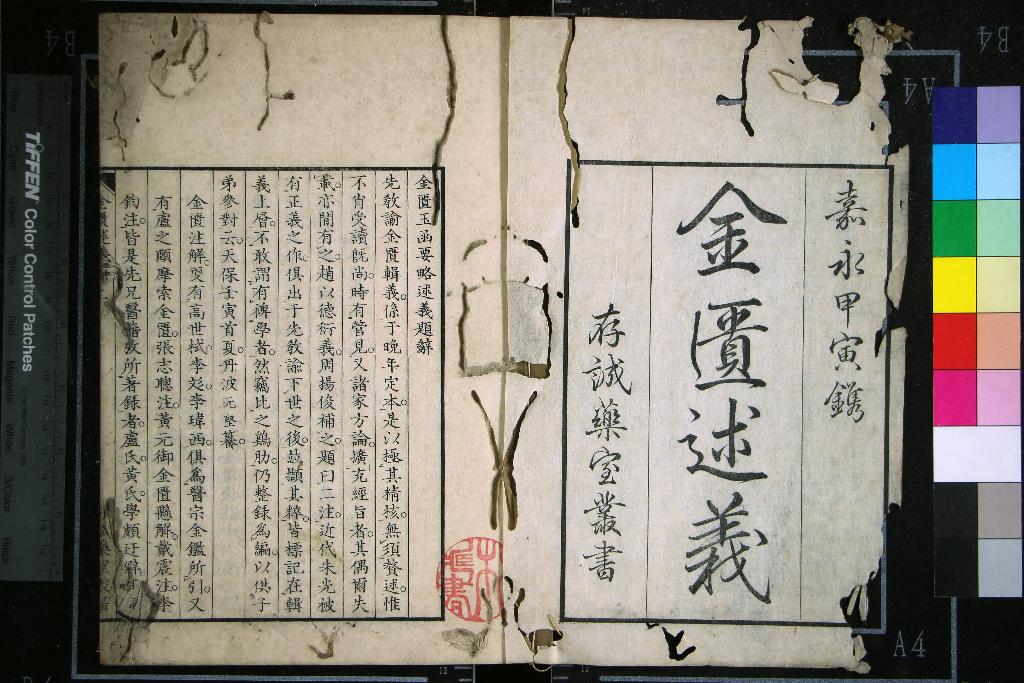 嘉永甲寅鐫
金匱述義
存誠藥室叢書
金匱玉函要略述義題辭
先教諭金匱輯義係于晚年定本是以極其精核無須贅述惟
不肯受讀既尚時有管見又諸家方論擴充經旨者其偶爾失
載亦間有之趙以德衍義周揚俊補之題曰二注近代朱光被
有正義之作俱出于先教諭下世之後並擷其粹皆標記在輯
義上層不敢謂有裨學者然竊比之鷄肋仍整錄為編以供子
弟參對云天保壬寅首夏丹波元堅纂
金匱注解更有高世栻李彣李瑋西俱為醫宗金鑑所引又
有盧之頤摩索金匱張志聰注黃元御金匱懸解戴震注李
鈞注皆是先兄醫籍攷所著錄者盧氏黃氏學頗迂僻
TIFFEN Color Control Patches
Blue
Cyan
Green
Yellow
Red
Magenta
White
3/Color
Black
B4
B4
A4
A4